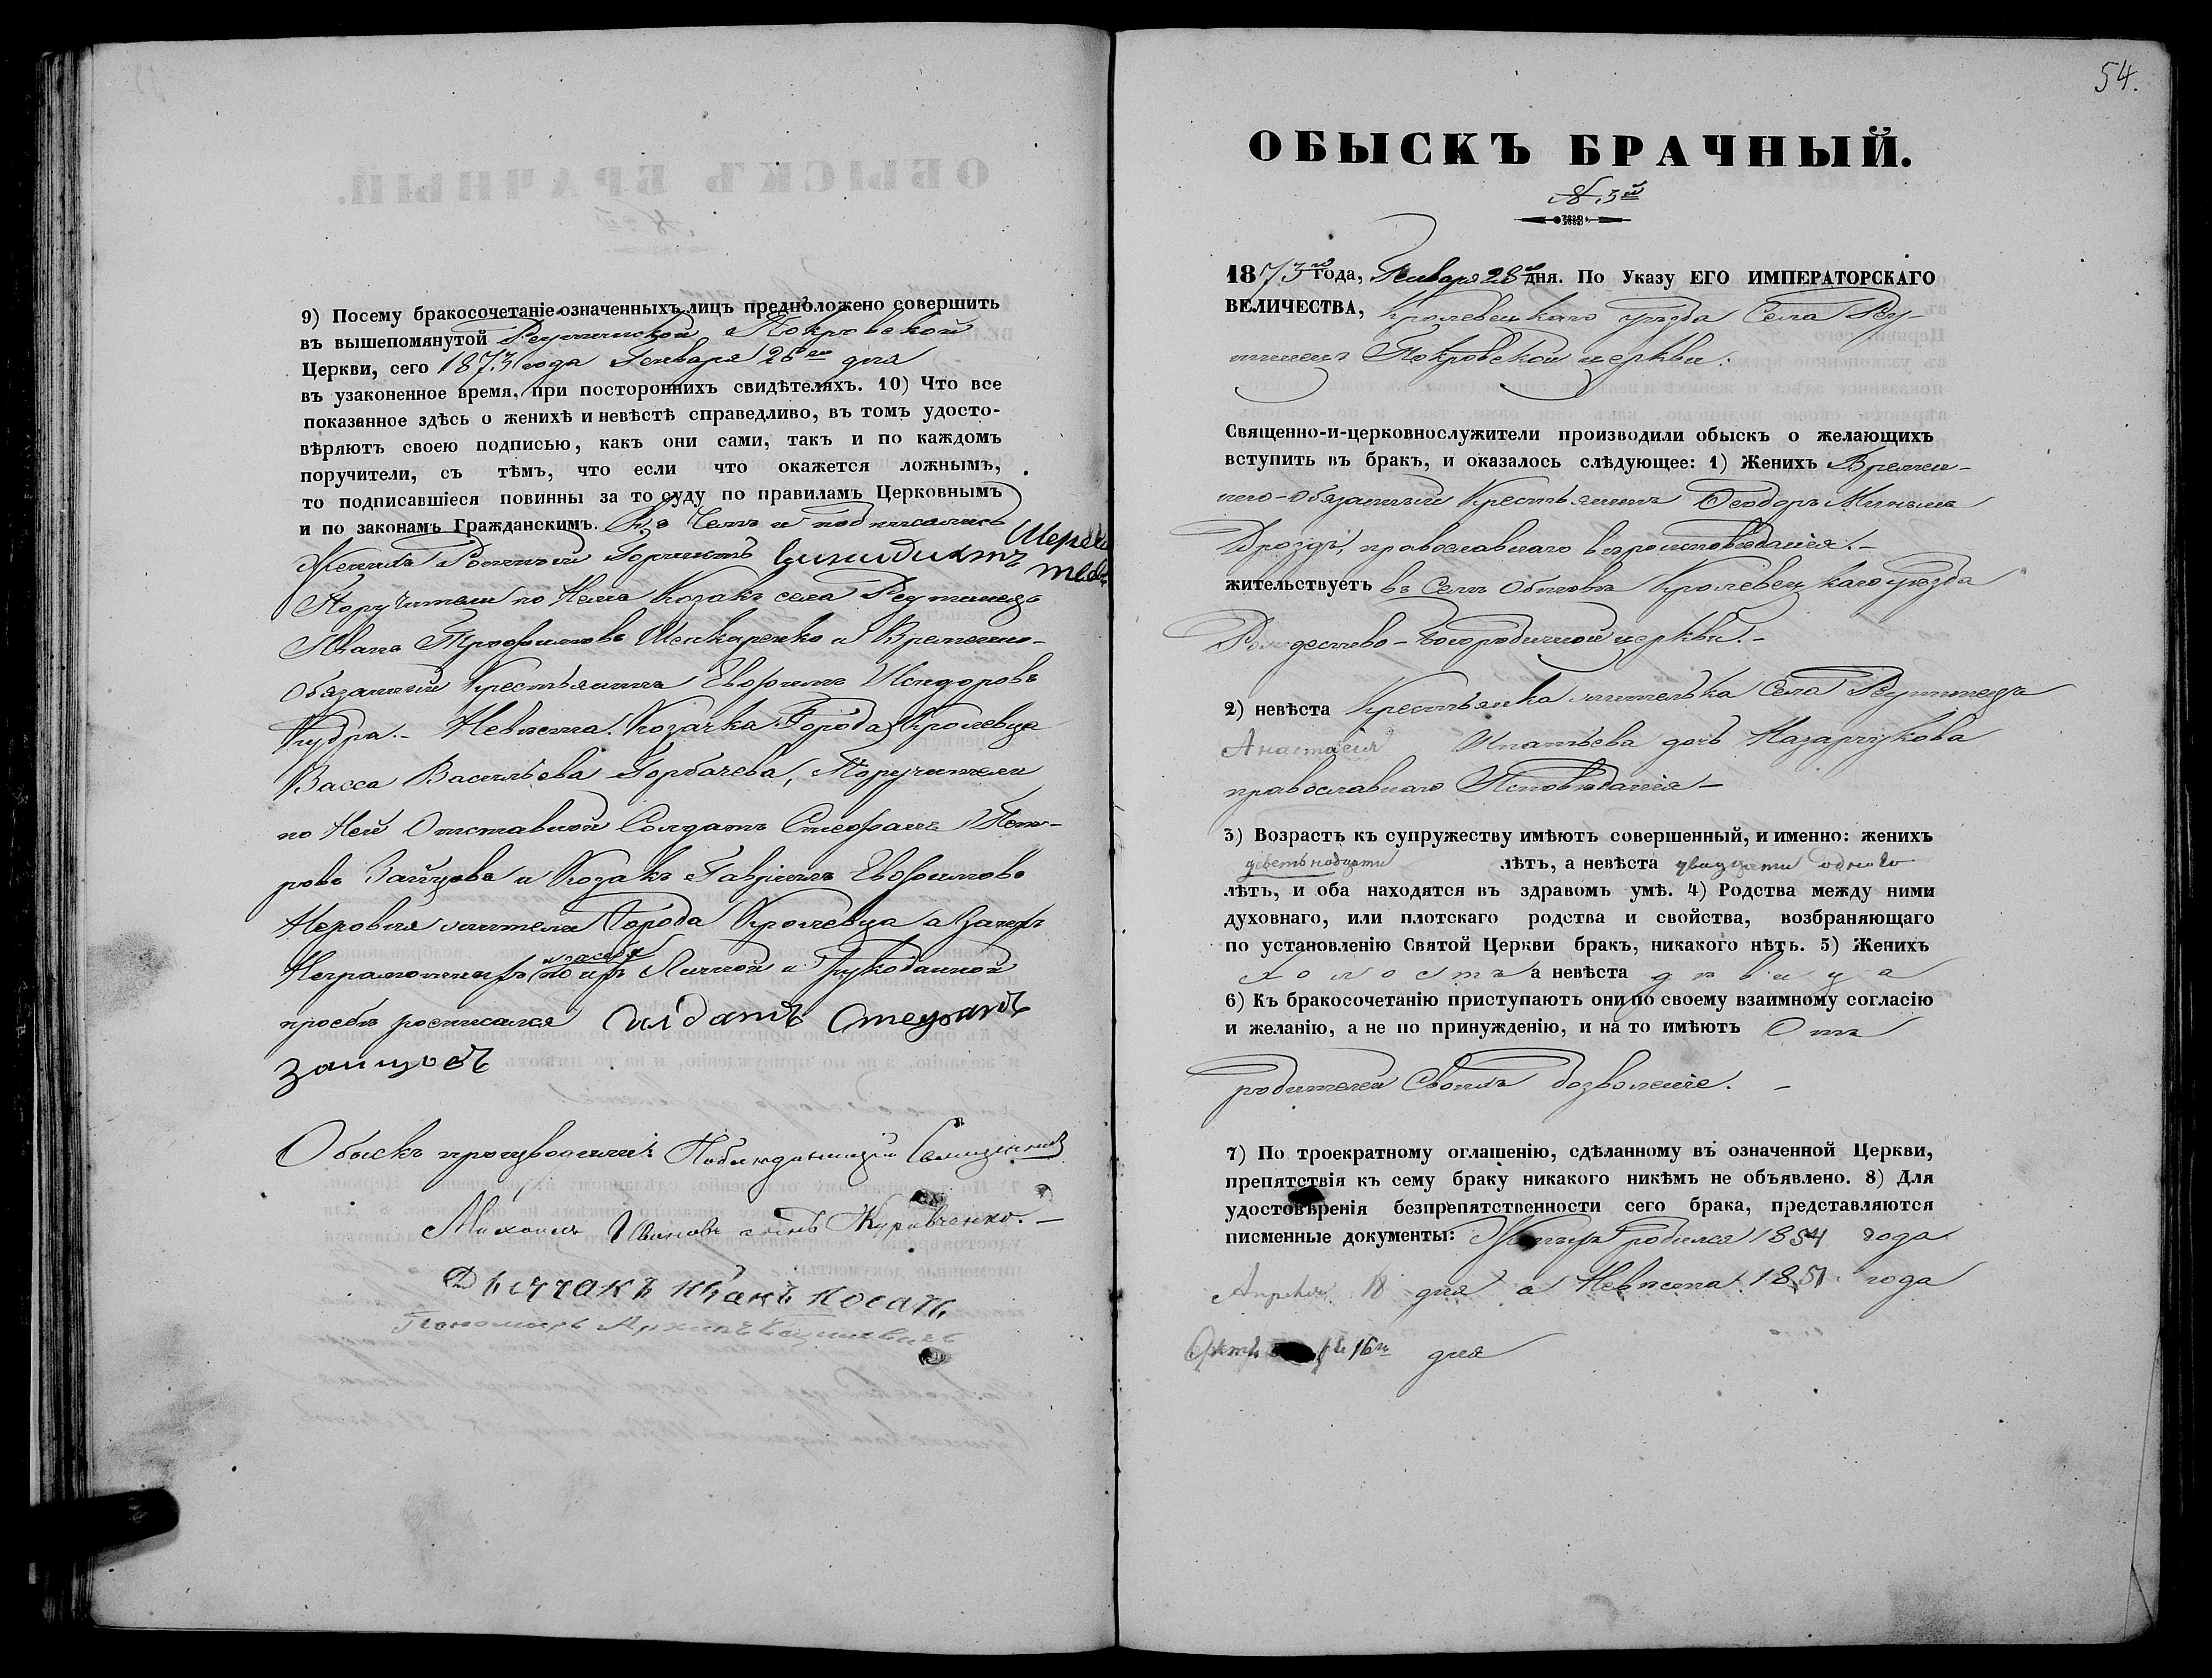 9) Посему бракосочетаніе означенныхъ лицъ предположено совершить
въ вышепомянутой Реутинской Покровской
Церкви, сего 1873 года Генваря 28го дня
въ узаконенное время, при постороннихъ свидѣтеляхъ. 10) Что все
показанное здѣсь о женихѣ и невѣстѣ справедливо, въ томъ удосто-
вѣряютъ своею подписью, какъ они сами, такъ и по каждомъ
поручители, съ тѣмъ, что если что окажется ложнымъ,
то подписавшіеся повинны за то суду по правиламъ Церковнымъ
и по законамъ Гражданскимъ. Въ чемъ и подписались
Женихъ Ротный Горнистъ
Поручители по Немъ Козакъ села Реутинецъ
Иванъ Трофимовъ Шинкаренко и Временно-
Обязанный Крестьянинъ Евфимъ Исидоровъ
Кудра. - Невѣста: Козачка Города Кролевца
Васса Васильева Горбачева, Поручители
по Ней Отставной Солдатъ Стефанъ Пет-
ровъ Зайцовъ и Козакъ Гавріилъ Евфимовъ
Неровня жители Города Кролевца а за ихъ
Неграмотныхъ по ихъ Личной и Рукоданной
просьбѣ росписался Салдатъ Стефанъ
Заицовъ
Обыскъ производили: Наблюдающій Священникъ
Михаилъ Ивановъ сынъ Журавченко. -
Дьячокъ Иванъ
Пономарь Архипъ
54.
ОБЫСКЪ БРАЧНЫЙ.
№ 3й
1873го года, Генваря 28го дня. По Указу ЕГО ИМПЕРАТОРСКАГО
ВЕЛИЧЕСТВА, Кролевецкаго уѣзда Села Реу-
тинецъ Покровской церкви.
Священно-и-церковнослужители производили обыскъ о желающихъ
вступить въ бракъ, и оказалось слѣдующее: 1) Женихъ Времен-
но-Обязанный Крестьянинъ Феодоръ Мининъ
Дроздъ, православнаго вѣроисповѣданія. -
жительствуетъ въ Селѣ Обтовѣ Кролевецкаго уѣзда
Рождество-Богородичной церкви. -
2) невѣста Крестьянка жителька Села Реутинецъ
Анастасія Игнатьева дочь Назарчукова
православнаго Исповѣданія -
3) Возрастъ къ супружеству имѣютъ совершенный, и именно: женихъ
девятьнадцати лѣтъ, а невѣста двадцати одного
лѣтъ, и оба находятся въ здравомъ умѣ. 4) Родства между ними
духовнаго, или плотскаго родства и свойства, возбраняющаго
по установленію Святой Церкви бракъ, никакого нѣтъ. 5) Женихъ
холостъ а невѣста дѣвица
6) Къ бракосочетанію приступаютъ они по своему взаимному согласію
и желанію, а не по принужденію, и на то имѣютъ Отъ
родителей своихъ дозволеніе. -
7) По троекратному оглашенію, сдѣланному въ означенной Церкви,
препятствія къ сему браку никакого никѣмъ не объявлено. 8) Для
удостовѣренія безпрепятственности сего брака, представляются
писменные документы: Женихъ родился 1854 года
Апрѣля 18 дня а Невѣста 1851 года
16го дня